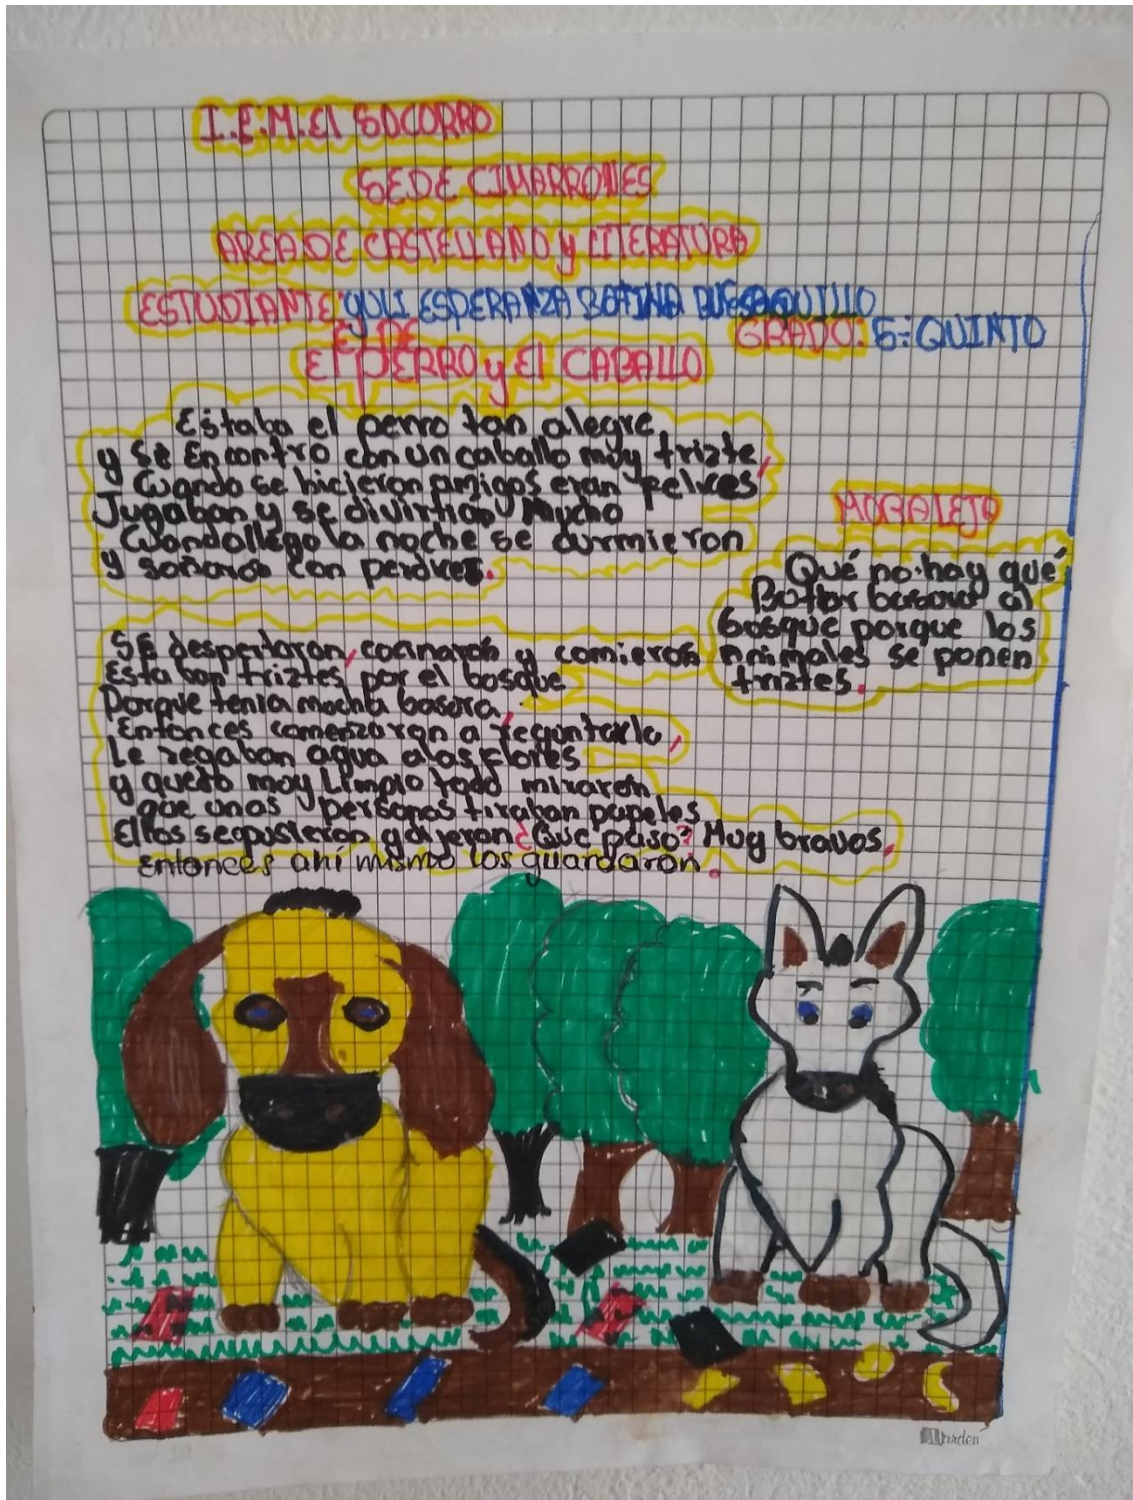 I.E.M. El SOCORRO
SEDE CIMARRONES
AREA DE CASTELLANO y LITERATURA
ESTUDIANTE: YULI ESPERANZA BOTINA BUESAQUILLO
GRADO: 5: QUINTO
El PERRO y El CABALLO
Estaba el perro tan alegre
y se encontro con un caballo muy trizte,
Cuando se hicieron amigos eran felices
Jugaban y se divirtian mucho
Cuando llego la noche se durmieron
y soñaron con
Se despertaron, cocinaron y comieron
Estaban triztes por el bosque
Porque tenia mucha basora,
Entonces comenzaron a
Le regaban agua a las flores
y quedo muy Limpio todo miraron
que unas personas tiraban papeles
Ellos se pusieron y dijeron ¿Que paso? Muy bravos,
entonces ahí mismo los guardaron.
MORALEJO
Qué no hay qué
Botar basora al
bosque porque los
animales se ponen
triztes.